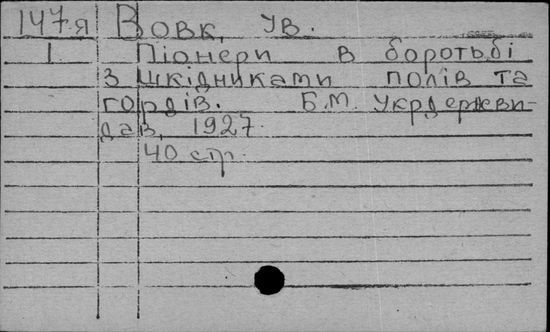 147.я Вовк, Ув.
1 Піонери в боротьбі
з шкідниками полів та
гордів. Б.М. Укрдержви-
дав, 1927.
40 стр.